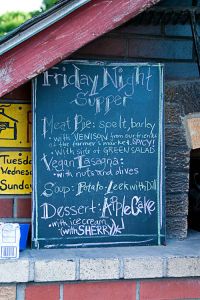 Friday Night
Supper
Meat Pie: spelt, barley
• with VENISON from our friends
at the farmer's market, SPICY!
• with side of GREEN SALAD
Vegan Lasagna:
• with nuts and olives
Soup: Potato-Leek with Dill
Dessert: Apple Cake
• with icecream
(with SHERRY)
Tuesday
Wednes
Sunday